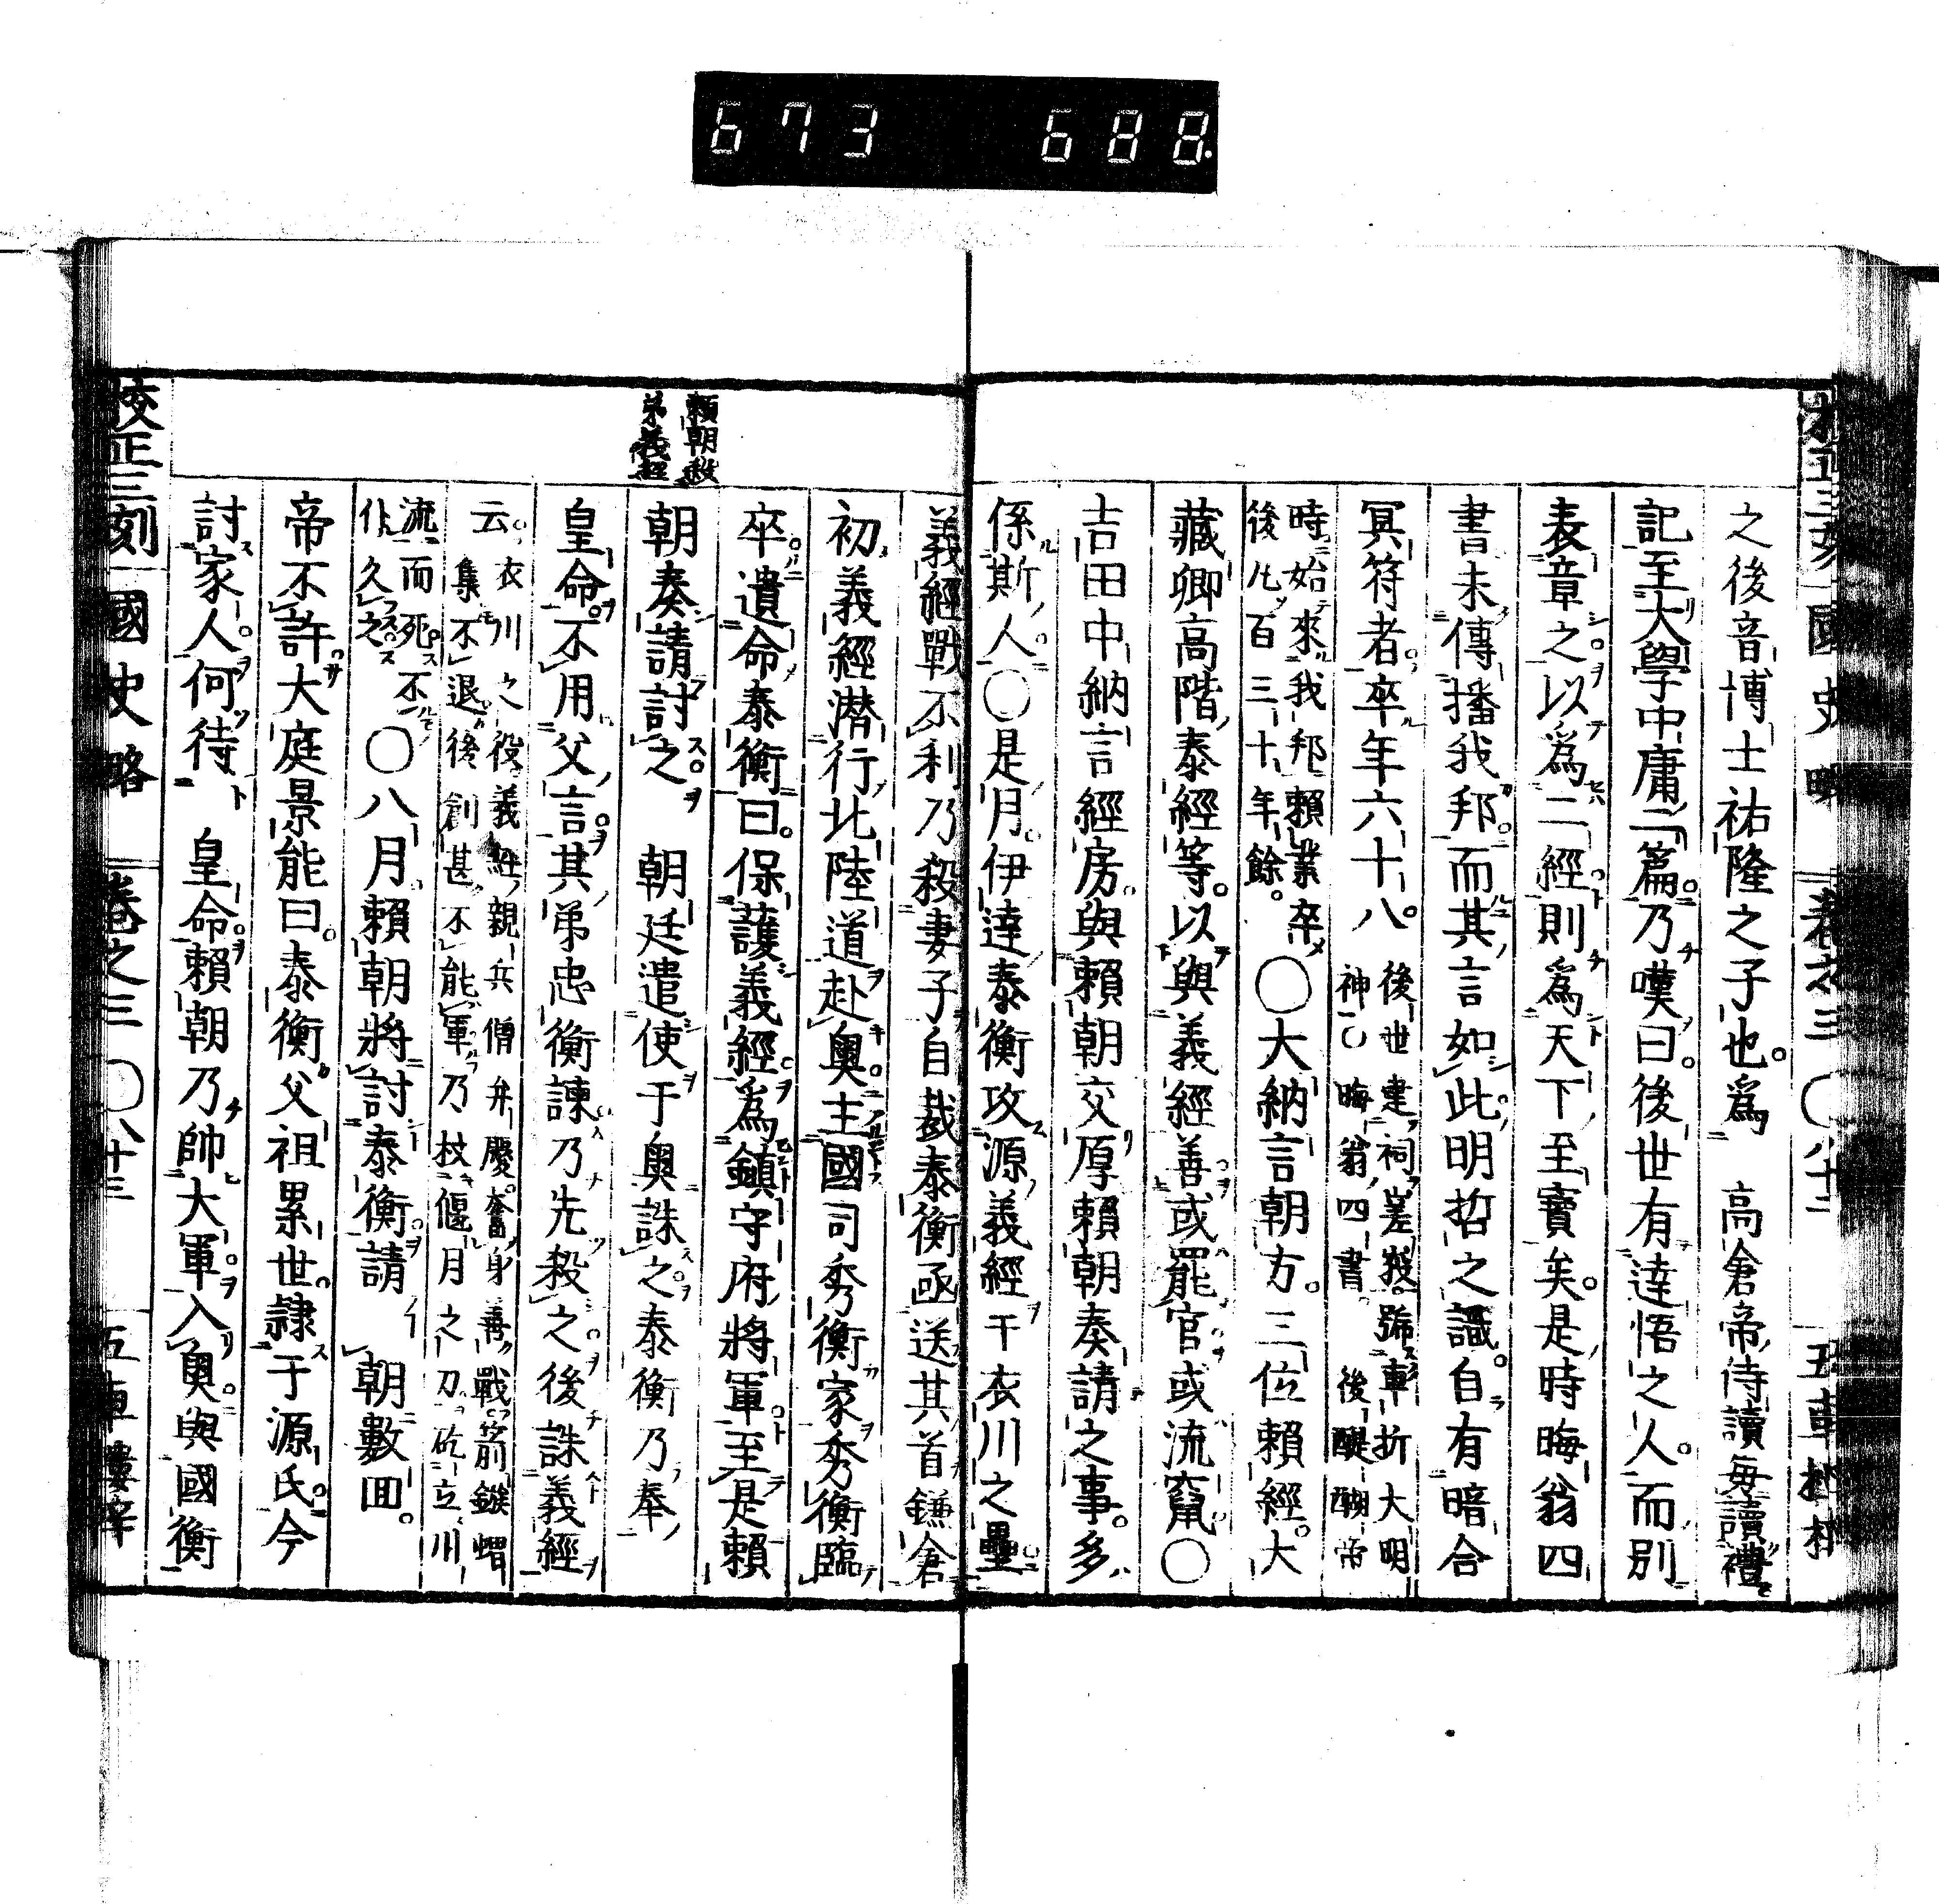 673 688.
之後音博士祐隆之子也。爲 高倉帝侍讀每讀禮
記至大學中庸二篇。乃嘆曰。後世有達悟之人。而別
表章之以爲二經。則爲天下至寶矣。是時晦翁四
書未傳播我邦。而其言如此。明哲之識。自有暗合
冥符者。卒年六十八。
後世建祠嵯峩。號車折大明
神〇晦翁四書。後醍醐帝
時始來我邦頼業卒
後凡百三十年餘。
〇大納言朝方。三位賴經。大
藏卿高階泰經等。以與義經善或罷官或流竄〇
吉田中納言經房。與賴朝交厚賴朝奏請之事。多
係斯人。〇是月。伊達泰衡攻源義經于衣川之壘。
義經戰不利乃殺妻子自裁泰衡函送其首鎌倉
初義經潜行北陸道赴奧。主國司秀衡家秀衡臨
卒。遺命泰衡曰。保護義經爲鎮守府將軍。至是賴
朝奏請討之。 朝廷遣使于奧誅之泰衡乃奉
皇命。不用父言。其弟忠衡諫乃先殺之後誅義經
云。
衣川之役。義經親兵僧弁慶。奮身善戰。箭鏃蝟
集不退。後創甚。不能軍。乃杖偃月之刀。矻立川
流而死。不
仆久之。
〇八月。賴朝將討泰衡。請 朝數回。
帝不許。大庭景能曰。泰衡父祖累世。隷于源氏。今
討家人。何待 皇命。賴朝乃帥大軍。入奧。與國衡
賴朝殺
弟義經
校正三刻 國史略 卷之三 〇八十三 五車樓梓